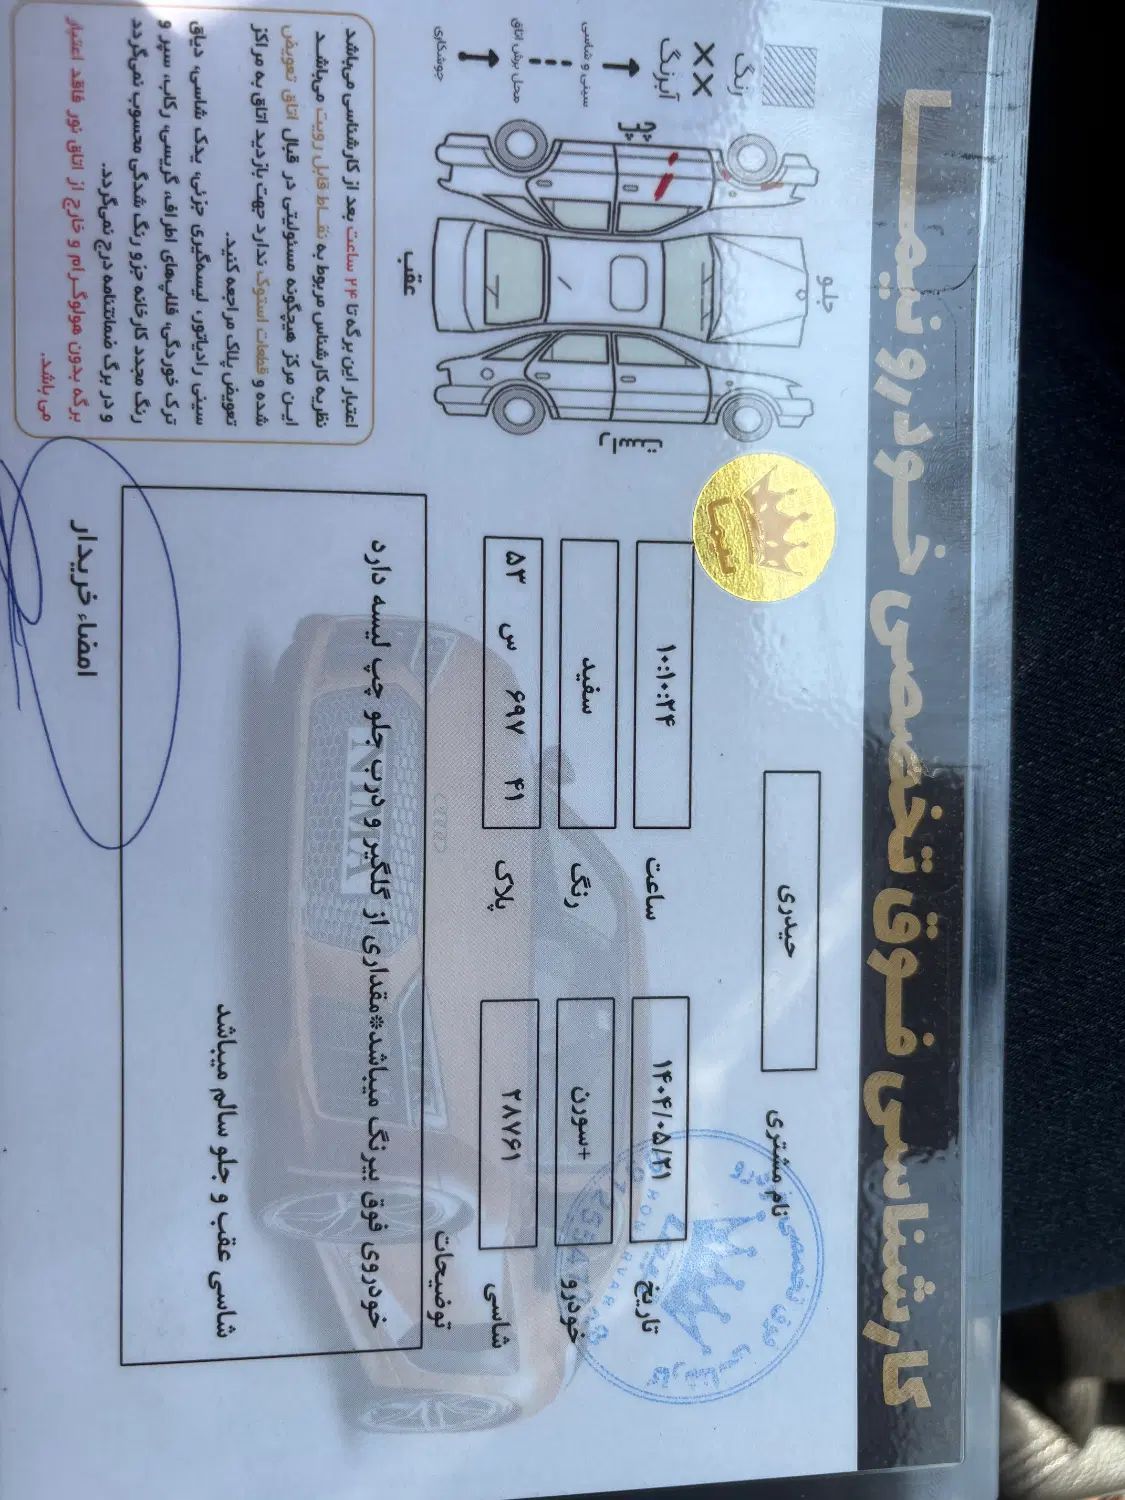 کارشناسی فوق تخصصی خودرو نیما
نام مشتری
حیدری
تاریخ
۱۴۰۴/۰۵/۲۱
ساعت
۱۰:۱۰:۲۴
خودرو
سورن+
رنگ
سفید
شاسی
۲۸۷۶۱
پلاک
۵۳ س ۶۹۷ ۴۱
توضیحات
خودروی فوق بیرنگ میباشد*مقداری از گلگیر و درب جلو چپ لیسه دارد
شاسی عقب و جلو سالم میباشد
امضاء خریدار
نیما
NIMA
رنگ
آبرنگ
سینی و شاسی
محل برش اتاق
جوشکاری
جلو
عقب
چپ
راست
اعتبار این برگه تا ۲۴ ساعت بعد از کارشناسی می‌باشد
نظریه کارشناس مربوط به نقـاط قابل رویت می‌باشـد
ایـن مرکز هیچگونه مسئولیتی در قبال اتاق تعویض
شده و قطعات استوک ندارد جهت بازدید اتاق به مراکز
تعویض پلاک مراجعه کنید.
سینی رادیاتور، لیسه‌گیری جزئی، یدک شاسی، دیاق
ترک خوردگی، قلاب‌های اطراف، گریسی، رکاب، سپر و
رنگ مجدد کارخانه جزو رنگ شدگی محسوب نمی‌گردد
و در برگ ضمانتنامه درج نمی‌گردد.
برگه بدون هولوگـرام و خارج از اتاق نور فاقد اعتبار
می باشد.